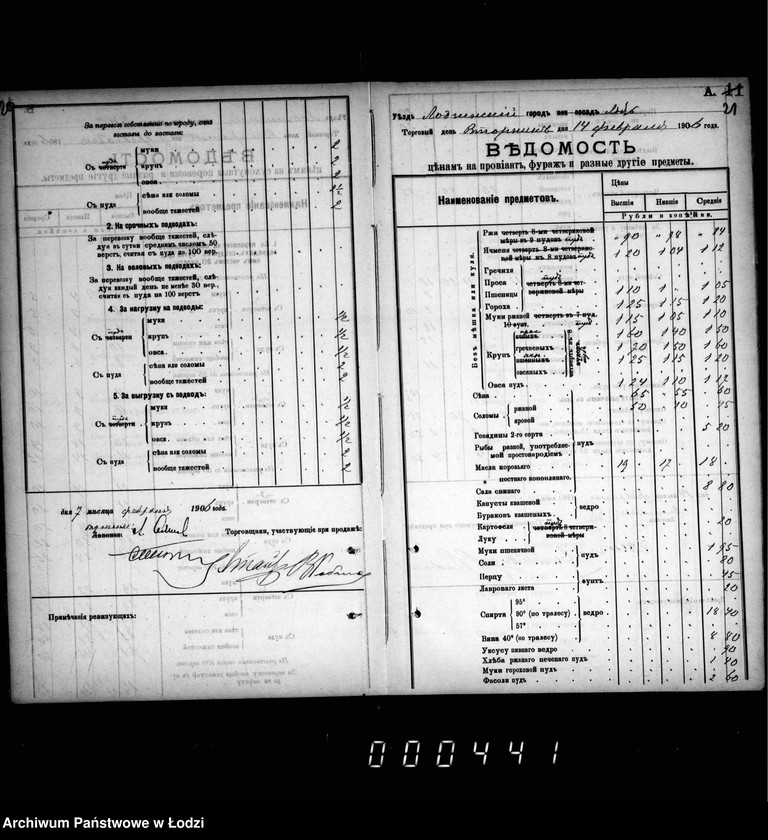 За перевозъ собственно по городу, отъ
заставы до заставы:
Съ четверти пуда
муки 2
крупъ 2
овса 2
Съ пуда
сѣна или соломы
вообще тяжестей 2
2. На срочныхъ подводахъ:
За перевозку вообще тяжестей, слѣ-
дуя въ сутки среднимъ числомъ 50
верстъ, считая съ пуда на 100 вер.
3. На воловыхъ подводахъ:
За перевозку вообще тяжестей, слѣ-
дуя каждый день не менѣе 30 вер.,
считая съ пуда на 100 верстъ
4. За нагрузку на подводы:
Съ четверти пуда
муки
крупъ
овса
Съ пуда
сѣна или соломы
вообще тяжестей
5. За выгрузку съ подводъ:
Съ четверти пуда
муки
крупъ
овса
Съ пуда
сѣна или соломы
вообще тяжестей
дня 7 мѣсяца февраля 1906 года.
Торговцы, участвующіе при продажѣ:
Примѣчанія ревизующихъ:
А. 11
21
Уѣздъ Лодзинскій городъ или посадъ Лодзь
Торговый день Вторникъ дня 14 февраля 1906 года.
ВѢДОМОСТЬ
цѣнамъ на провіантъ, фуражъ и разные другіе предметы.
Наименованіе предметовъ.
Цѣны
Высшія Низшія Среднія
Рубли и копѣйки.
Безъ мѣшка или куля.
Ржи четверть 8-ми четвериковой мѣры въ 9 пудовъ пуда 90 98 94
Ячменя четверть 8-ми четвериковой мѣры въ 8 пудовъ пуда 1 20 1 04 1 12
Гречихи
Проса
Пшеницы 1 10 1 1 05
четверть 8-ми четвериковой мѣры пуда
Гороха 1 25 1 15 1 20
Муки ржаной четверть въ 7 пуд. 10 фунт. пуда 1 15 1 05 1 10
Крупъ
1 60 1 40 1 50
гречневыхъ 1 70 1 50 1 60
1 25 1 15 1 20
овсяныхъ
Овса пудъ 1 24 1 10 1 17
Сѣна 65 55 60
Соломы
ржаной 50 40 45
яровой
Говядины 2-го сорта 5 20
Рыбы разной, употребляемой простонародіемъ
пудъ
Масла коровьяго 19 17 18
" постнаго коноплянаго
Сала свиного 8 80
Капусты квашеной
Бураковъ квашеныхъ
ведро
Картофеля 20
Луку
четверть 8 четвериковой мѣры пуда
Муки пшеничной 1 95
Соли 80
пудъ
Перцу 45
Лавроваго листа 20
фунтъ
Спирта
95°
90° (по тралесу) ведро 18 40
57°
Вина 40° (по тралесу) 8 80
Уксусу пивнаго ведро 90
Хлѣба ржанаго печенаго пудъ 1 40
Муки гороховой пудъ
Фасоли пудъ 2 60
000441
Archiwum Państwowe w Łodzi